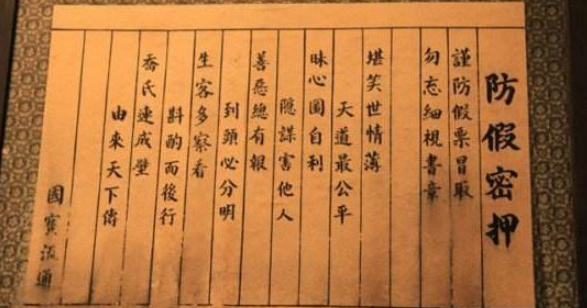 防假密押
謹防假票冒取
勿忘細視書章
堪笑世情薄
天道最公平
昧心圖自利
隱謀害他人
善惡總有報
到頭必分明
生客多察看
斟酌而後行
喬氏連成壁
由來天下傳
國寶流通